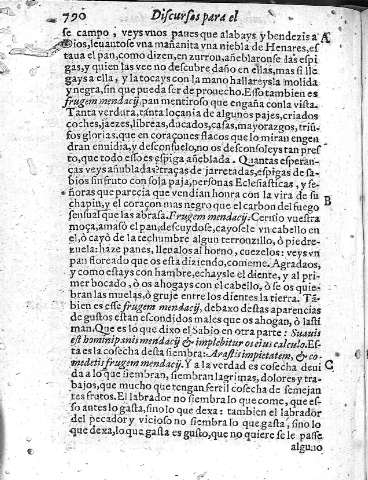 790 Discursos para el
se campo, veys vnos panes que alabays y bendezis a A
Dios, leuantose vna mañanita vna niebla de Henares, es
taua el pan, como dizen, en zurron, añeblaronse las espi
gas, y quien las vee no descubre daño en ellas, mas si lle
gays a ella, y la tocays con la mano hallareysla molida
y negra, sin que pueda ser de prouecho. Esso tambien es
frugem mendacij, pan mentiroso que engaña con la vista.
Tanta verdura, tanta loçania de algunos pajes, criados
coches, jaezes, libreas, ducados, casas, mayorazgos, triũ-
fos glorias, que en coraçones flacos que lo miran engen
dran enuidia, y desconsuelo, no os desconsoleys tan pres
to, que todo esso es espiga añeblada. Quantas esperan-
ças veys añubladas? traças de jarretadas, espigas de sa-
bios sin fruto con sola paja, personas Ecclesiasticas, y se-
ñoras que parecia que vendian honra con la vira de su B
chapin, y el coraçon mas negro que el carbon del fuego
sensual que las abrasa. Frugem mendacij. Cernio vuestra
moça, amasò el pan, descuydose, cayosele vn cabello en
el, ò cayò de la techumbre algun terronzillo, ò piedre-
zuela: haze panes, lleualos al horno, cuezelos: veys vn
pan floreado que os esta diziendo, comeme. Agradaos,
y como estays con hambre, echaysle el diente, y al pri-
mer bocado, ò os ahogays con el cabello, ò se os quie-
bran las muelas, ò gruje entre los dientes la tierra. Tã-
bien es esse frugem mendacij, debaxo destas apariencias
de gustos estan escondidos males que os ahogan, ò lasti
man. Que es lo que dixo el Sabio en otra parte: Suauis
est homini panis mendacij & implebitur os eius calculo. Es-
ta es la cosecha desta siembra: Arastis impietatem, & co-
medistis frugem mendacij. Y a la verdad es cosecha deui C
da a lo que siembran, siembran lagrimas, dolores y tra-
bajos, que mucho que tengan fertil cosecha de semejan
tes fratos. El labrador no siembra lo que come, que es-
so antes lo gasta, sino lo que dexa: tambien el labrador
del pecador y vicioso no siembra lo que gasta, sino lo
que dexa, lo que gasta es gusto, que no quiere se le passe
alguno